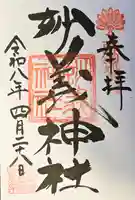 奉拝
妙義神社
令和八年四月二十八日